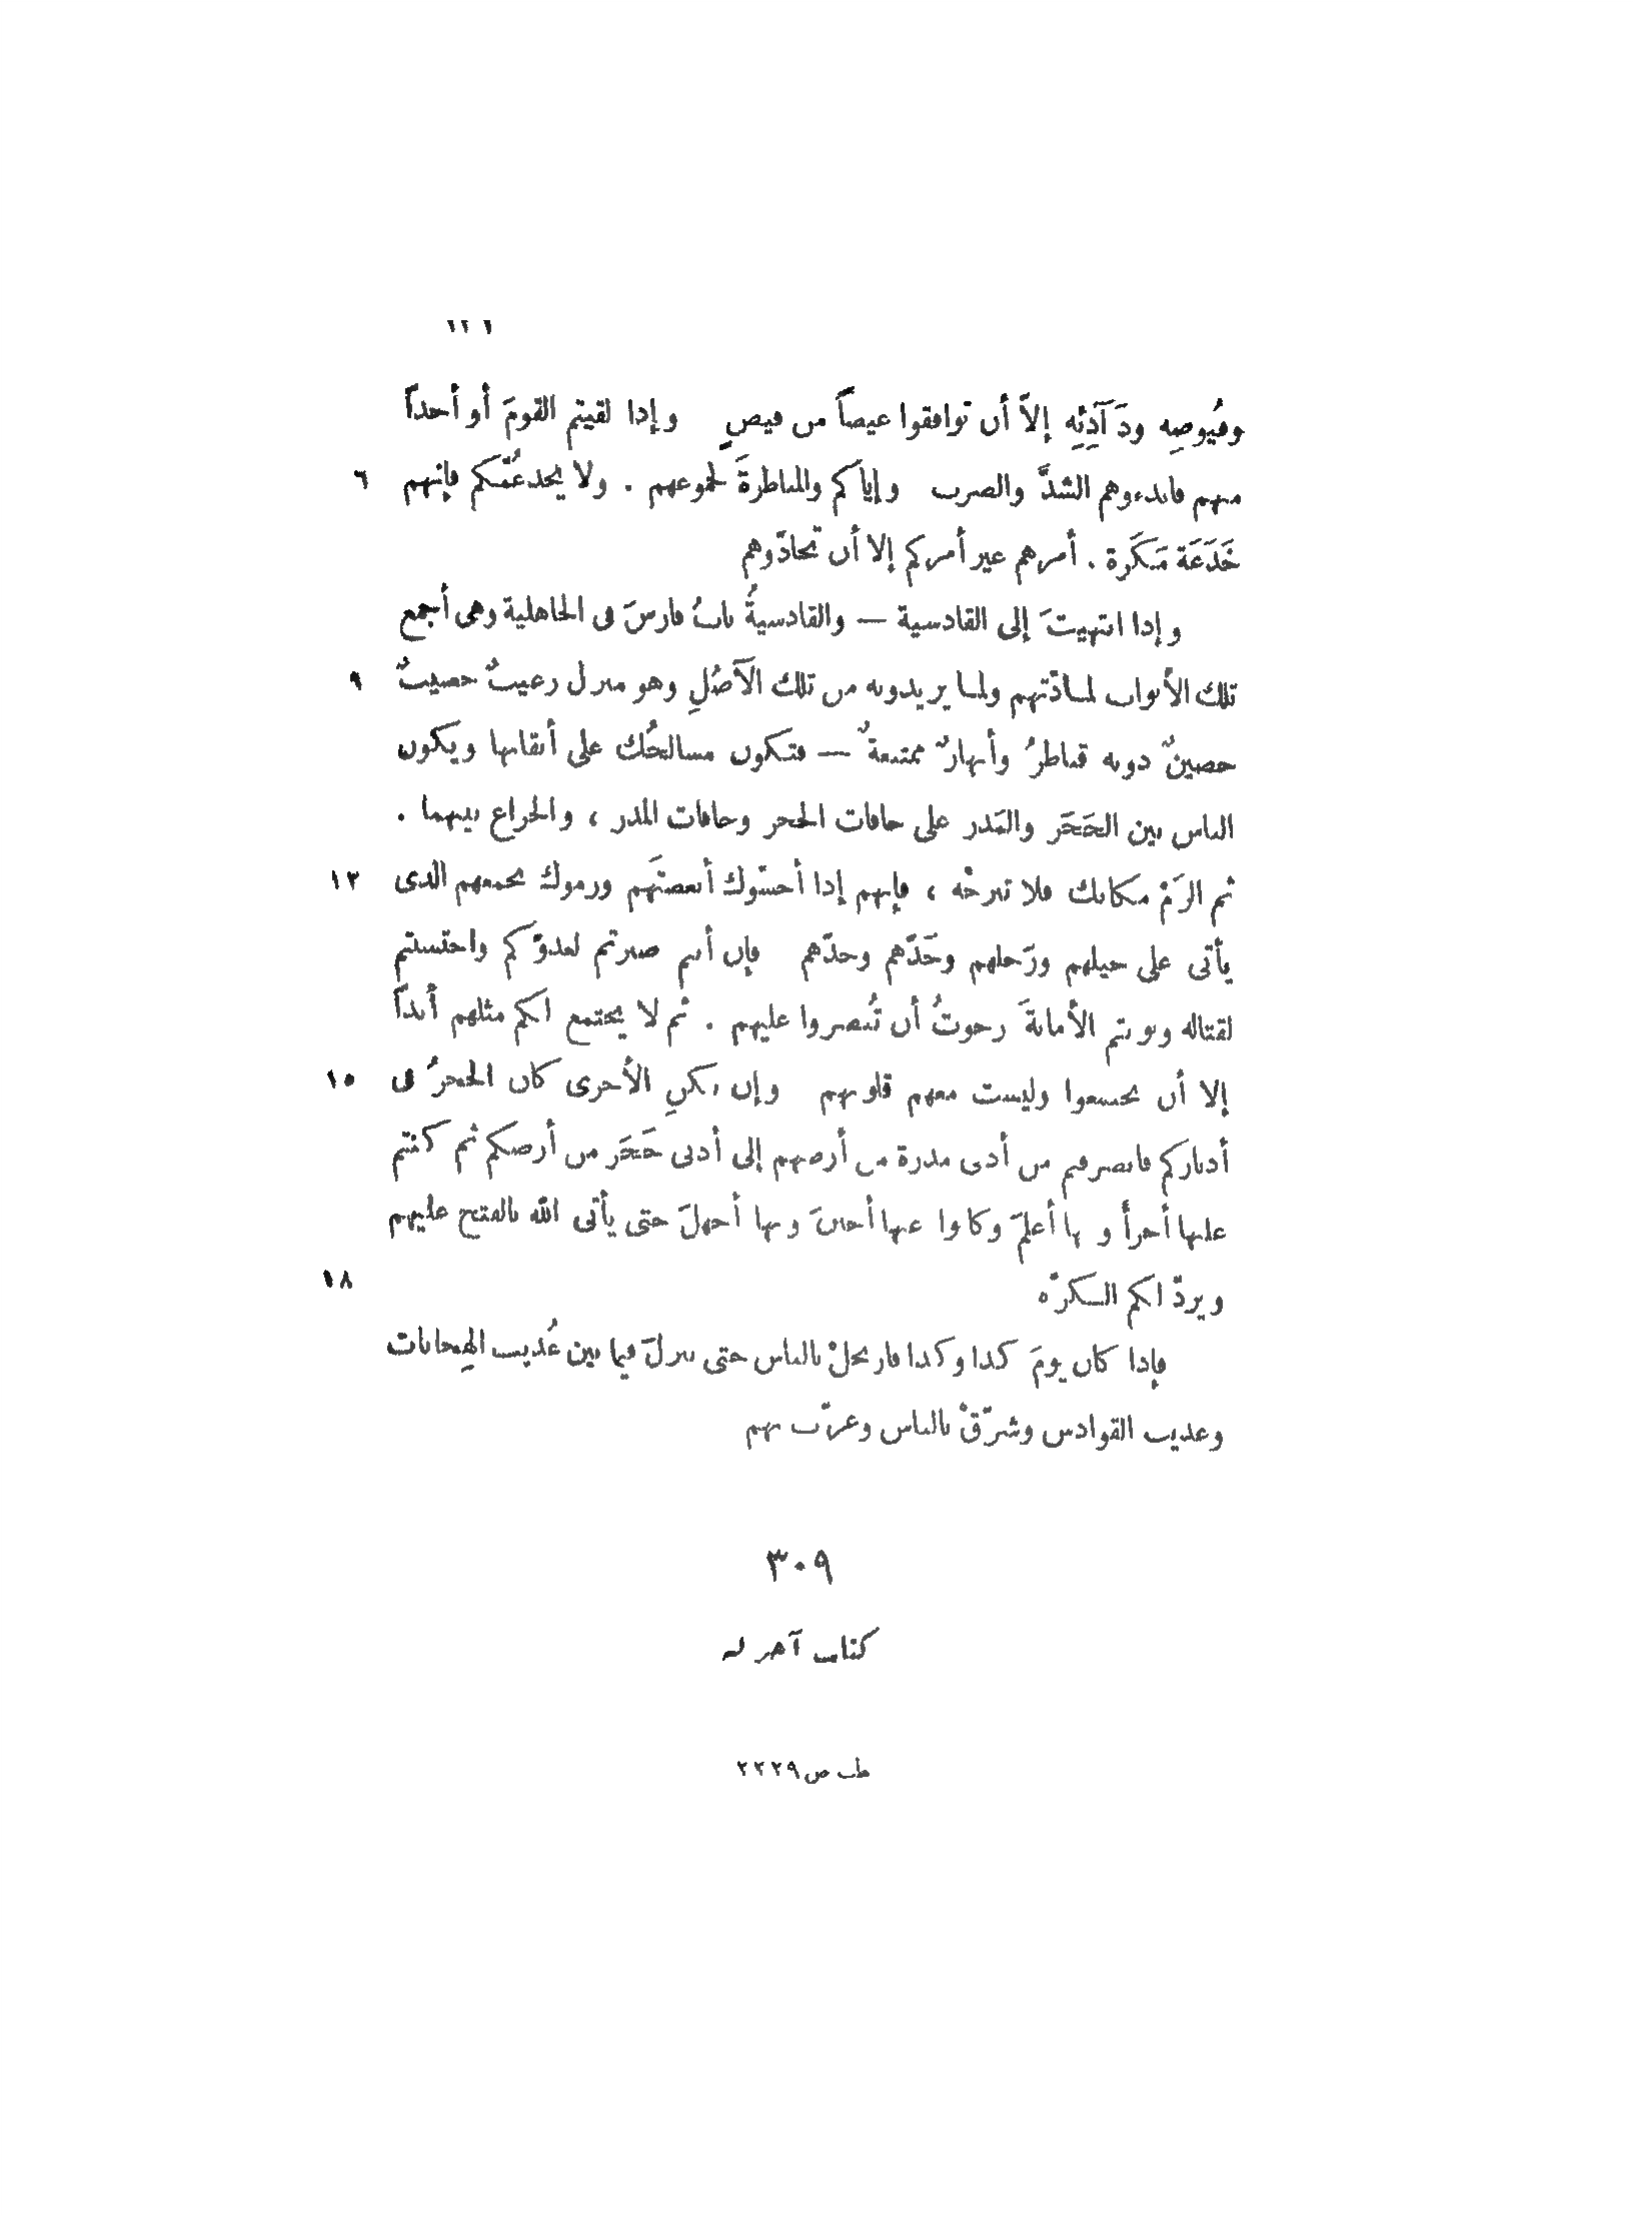 وفُيُوضِه ودَ آدِئِه إلاّ أن توافقوا غيضاً من فيضٍ وإذا لقيتم القومَ أو أحداً
منهم فابدءوهم الشدَّ والضرب وإياكم والمناظرةَ لجموعهم . ولا يخدعُنّكم فإنهم ٦
خَدَعَة مَكَرة . أمرهم غير أمركم إلا أن تجادّوهم
وإذا انتهيتَ إلى القادسية — والقادسيةُ بابُ فارسَ فى الجاهلية وهى أجمع
تلك الأبواب لمادّتهم ولما يريدونه من تلك الآصُلِ وهو منزل رغيبٌ خصيبٌ ٩
حصينٌ دونه قناطرُ وأنهارٌ ممتنعةٌ — فتكون مسالحُك على أنقابها ويكون
الناس بين الحَجَر والمَدر على حافات الحجر وحافات المدر ، والجراع بينهما .
ثم الزَمْ مكانك فلا تبرحْه ، فإنهم إذا أحسّوك أنغضتَهم ورموك بجمعهم الذى ١٢
يأتى على خيلهم ورَجلهم وحَدّهم وجدّهم فإن أنتم صبرتم لعدوّكم واحتسبتم
لقتاله ونويتم الأمانةَ رجوتُ أن تُنصروا عليهم . ثم لا يجتمع لكم مثلهم أبداً
إلا أن يجتمعوا وليست معهم قلوبهم وإن تكنِ الأخرى كان الحجرُ فى ١٥
أدباركم فانصرفتم من أدنى مدرة من أرضهم إلى أدنى حَجَر من أرضكم ثم كنتم
عليها أجرأَ وبها أعلمَ وكانوا عنها أجبنَ وبها أجهلَ حتى يأتى الله بالفتح عليهم
ويردّ لكم الكرّه ١٨
فإذا كان يومَ كذا وكذا فارتحلْ بالناس حتى تنزلَ فيما بين عُذيب الهِجانات
وعذيب القوادس وشرّقْ بالناس وغرّب بهم
٣٠٩
كتاب آخر له
طب ص ٢٢٢٩